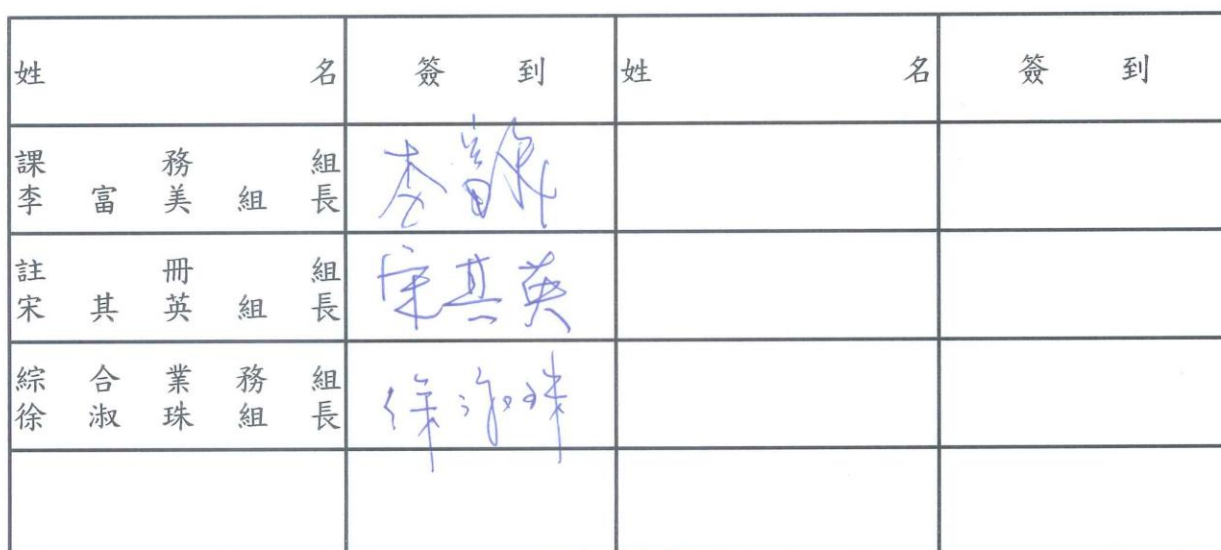 姓名 簽到 姓名 簽到
課務組
李富美組長 李富美
註冊組
宋其英組長 宋其英
綜合業務組
徐淑珠組長 徐淑珠